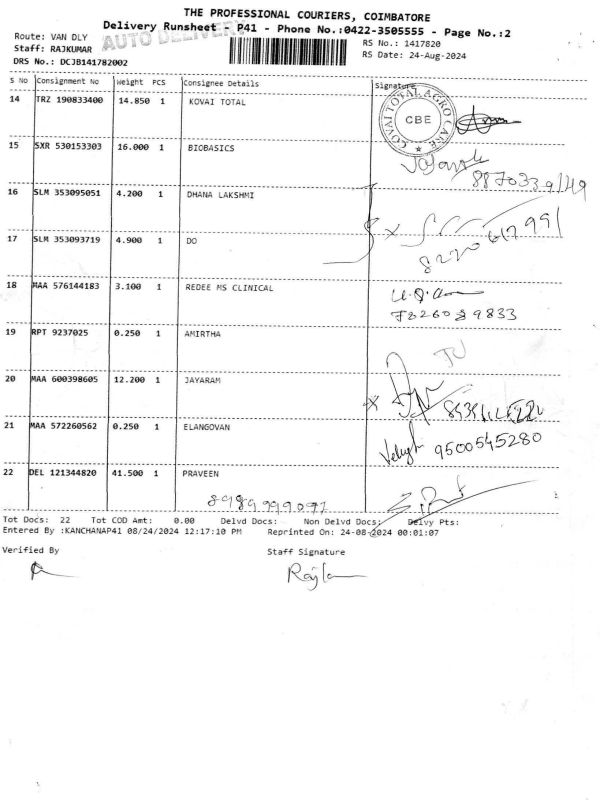 THE PROFESSIONAL COURIERS, COIMBATORE
Delivery Runsheet - P41 - Phone No.:0422-3505555 - Page No.:2
AUTO DELIVERY
Route: VAN DLY
RS No.: 1417820
Staff: RAJKUMAR
RS Date: 24-Aug-2024
DRS No.: DCJB141782002
S No Consignment No Weight PCS Consignee Details Signature
14 TRZ 190833400 14.850 1 KOVAI TOTAL
KOVAI TOTAL AGRO CARE
CBE
15 SXR 530153303 16.000 1 BIOBASICS
8870339149
16 SLM 353095051 4.200 1 DHANA LAKSHMI
17 SLM 353093719 4.900 1 DO
8220617991
18 MAA 576144183 3.100 1 REDEE MS CLINICAL
19 RPT 9237025 0.250 1 AMIRTHA
20 MAA 600398605 12.200 1 JAYARAM
21 MAA 572260562 0.250 1 ELANGOVAN
9500545280
22 DEL 121344820 41.500 1 PRAVEEN
Tot Docs: 22 Tot COD Amt: 0.00 Delvd Docs: Non Delvd Docs: Delvy Pts:
Entered By :KANCHANAP41 08/24/2024 12:17:10 PM Reprinted On: 24-08-2024 00:01:07
Verified By Staff Signature